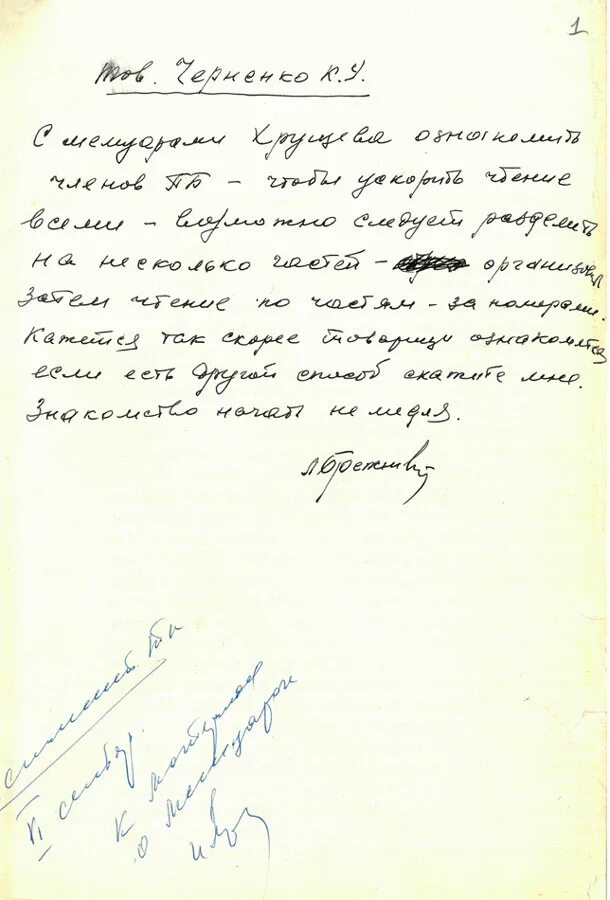 1
тов. Черненко К.У.
С мемуарами Хрущева ознакомить
членов ПБ – чтобы ускорить чтение
всеми – возможно следует разделить
на несколько частей – организовав
Затем чтение по частям – за номерами.
Кажется так скорее товарищи ознакомятся
если есть другой способ скажите мне.
Знакомство начать не медля.
Л Брежнев
VI
К
о мемуарах